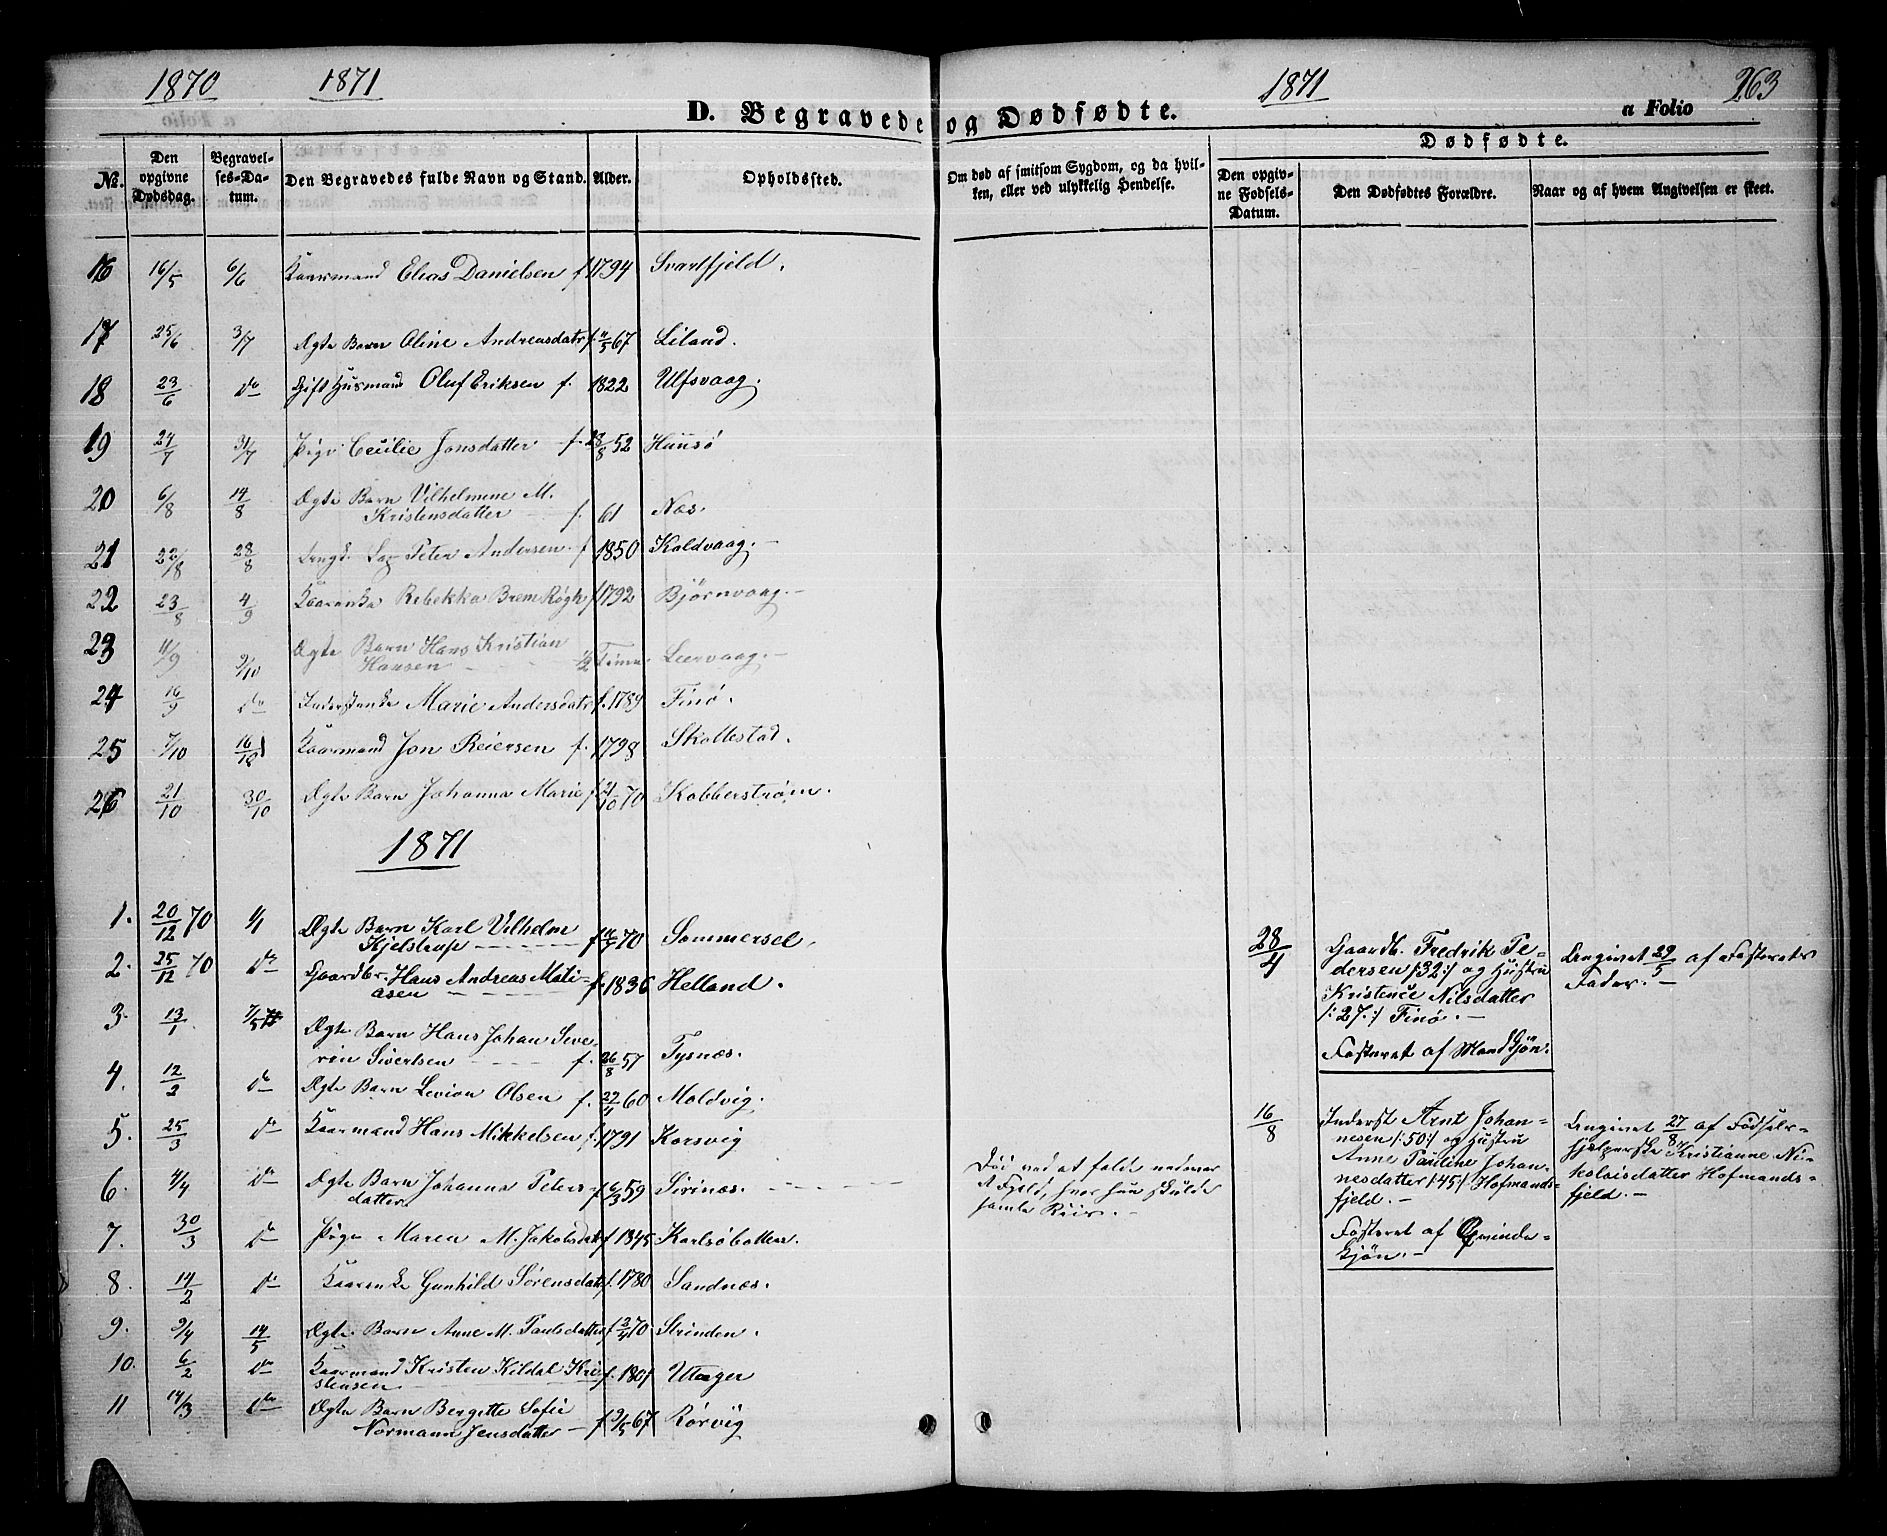 1870 1871
1871 263
D. Begravede og Dødfødte. a Folio
No. Den opgivne Dødsdag. Begravelses-Datum. Den Begravedes fulde Navn og Stand. Alder. Opholdssted. Om død af smitsom Sygdom, og da hvilken, eller ved ulykkelig Hendelse.
Dødfødte.
Den opgivne Fødsels-Datum. Den Dødfødtes Forældre. Naar og af hvem Angivelsen er skeet.
16 16/5 6/6 Kaarmand Elias Danielsen f. 1794 Svartfjeld.
17 25/6 3/7 Ægte Barn Oline Andreasdatr f. 67 Liland.
18 23/6 do Gift Husmand Oluf Eriksen f. 1822 Ulfsvaag.
19 24/7 31/7 Pige Cecilie Jonsdatter f. 28/8 52 Hunsø
20 6/8 14/8 Ægte Barn Vilhelmine M.
Kristensdatter f. 61 Næs
21 22/8 28/8 Peter Andersen f 1850 Koldvaag.
22 23/8 4/9 Kaarenke Rebekka Brem Røgh f 1792 Bjørnvaag.
23 11/9 9/10 Ægte Barn Hans Kristian
Hansen ½ Time. Leervaag.
24 16/9 do Inderstenke Marie Andersdatr f. 1789 Finø.
25 7/10 16/10 Kaarmand Jon Reiersen f. 1798 Skottestad.
26 21/10 30/10 Ægte Barn Johanna Marie f 21/10 70 Kobberstrøm.
1871
1. 20/12 70 1/1 Ægte Barn Karl Vilhelm
Kjelstrup f 70 Sommersel.
2. 25/12 70 do Gaardbr. Hans Andreas Mati-
asen f. 1836 Helland.
3. 13/1 7/5 Ægte Barn Hans Johan Seve-
rin Sivertsen f. 26/8 57 Tysnæs.
4. 12/2 do Ægte Barn Levion Olsen f. 60 Moldvig.
5. 25/3 do Kaarmand Hans Mikkelsen f. 1791 Korsvig
6. 4/4 do Ægte Barn Johanna Peters-
datter f 6/3 59 Sirinæs.
Død ved at falde nedover
et Fjeld, hvor hun skulde
samle Riis.
7. 30/3 do Pige Maren M. Jakobsdatr f 1845 Karlsøbotten.
8. 14/2 do Kaarenke Gunhild Sørensdatr f. 1780 Sandnæs.
9. 9/4 14/5 Ægte Barn Anne M. Paulsdatter f 70 Strinden.
10. 6/2 do Kaarmand Kristen Kildal Kri-
stensen f. 1801 Utager
11 14/3 do Ægte Barn Bergitte Sofie
Normann Jensdatter f 9/5 67 Rørvig
28/4 Gaardb. Fredrik Pe-
dersen /:32:/ og Hustru
Kristence Nilsdatter
/:27:/ Finø.
Fosteret af Mandkjøn.
Angivet 29/5 af Fosterets
Fader.
16/8 Inderst Arnt Johan-
nesen /:50:/ og Hustru
Anne Pauline Johan-
nesdatter /:45:/ Hofmands-
fjeld.
Fosteret af Qvinde-
kjøn.
Angivet 27/8 af Fødsels-
hjælperske Kristianne Ni-
kolaisdatter Hofmands-
fjeld.